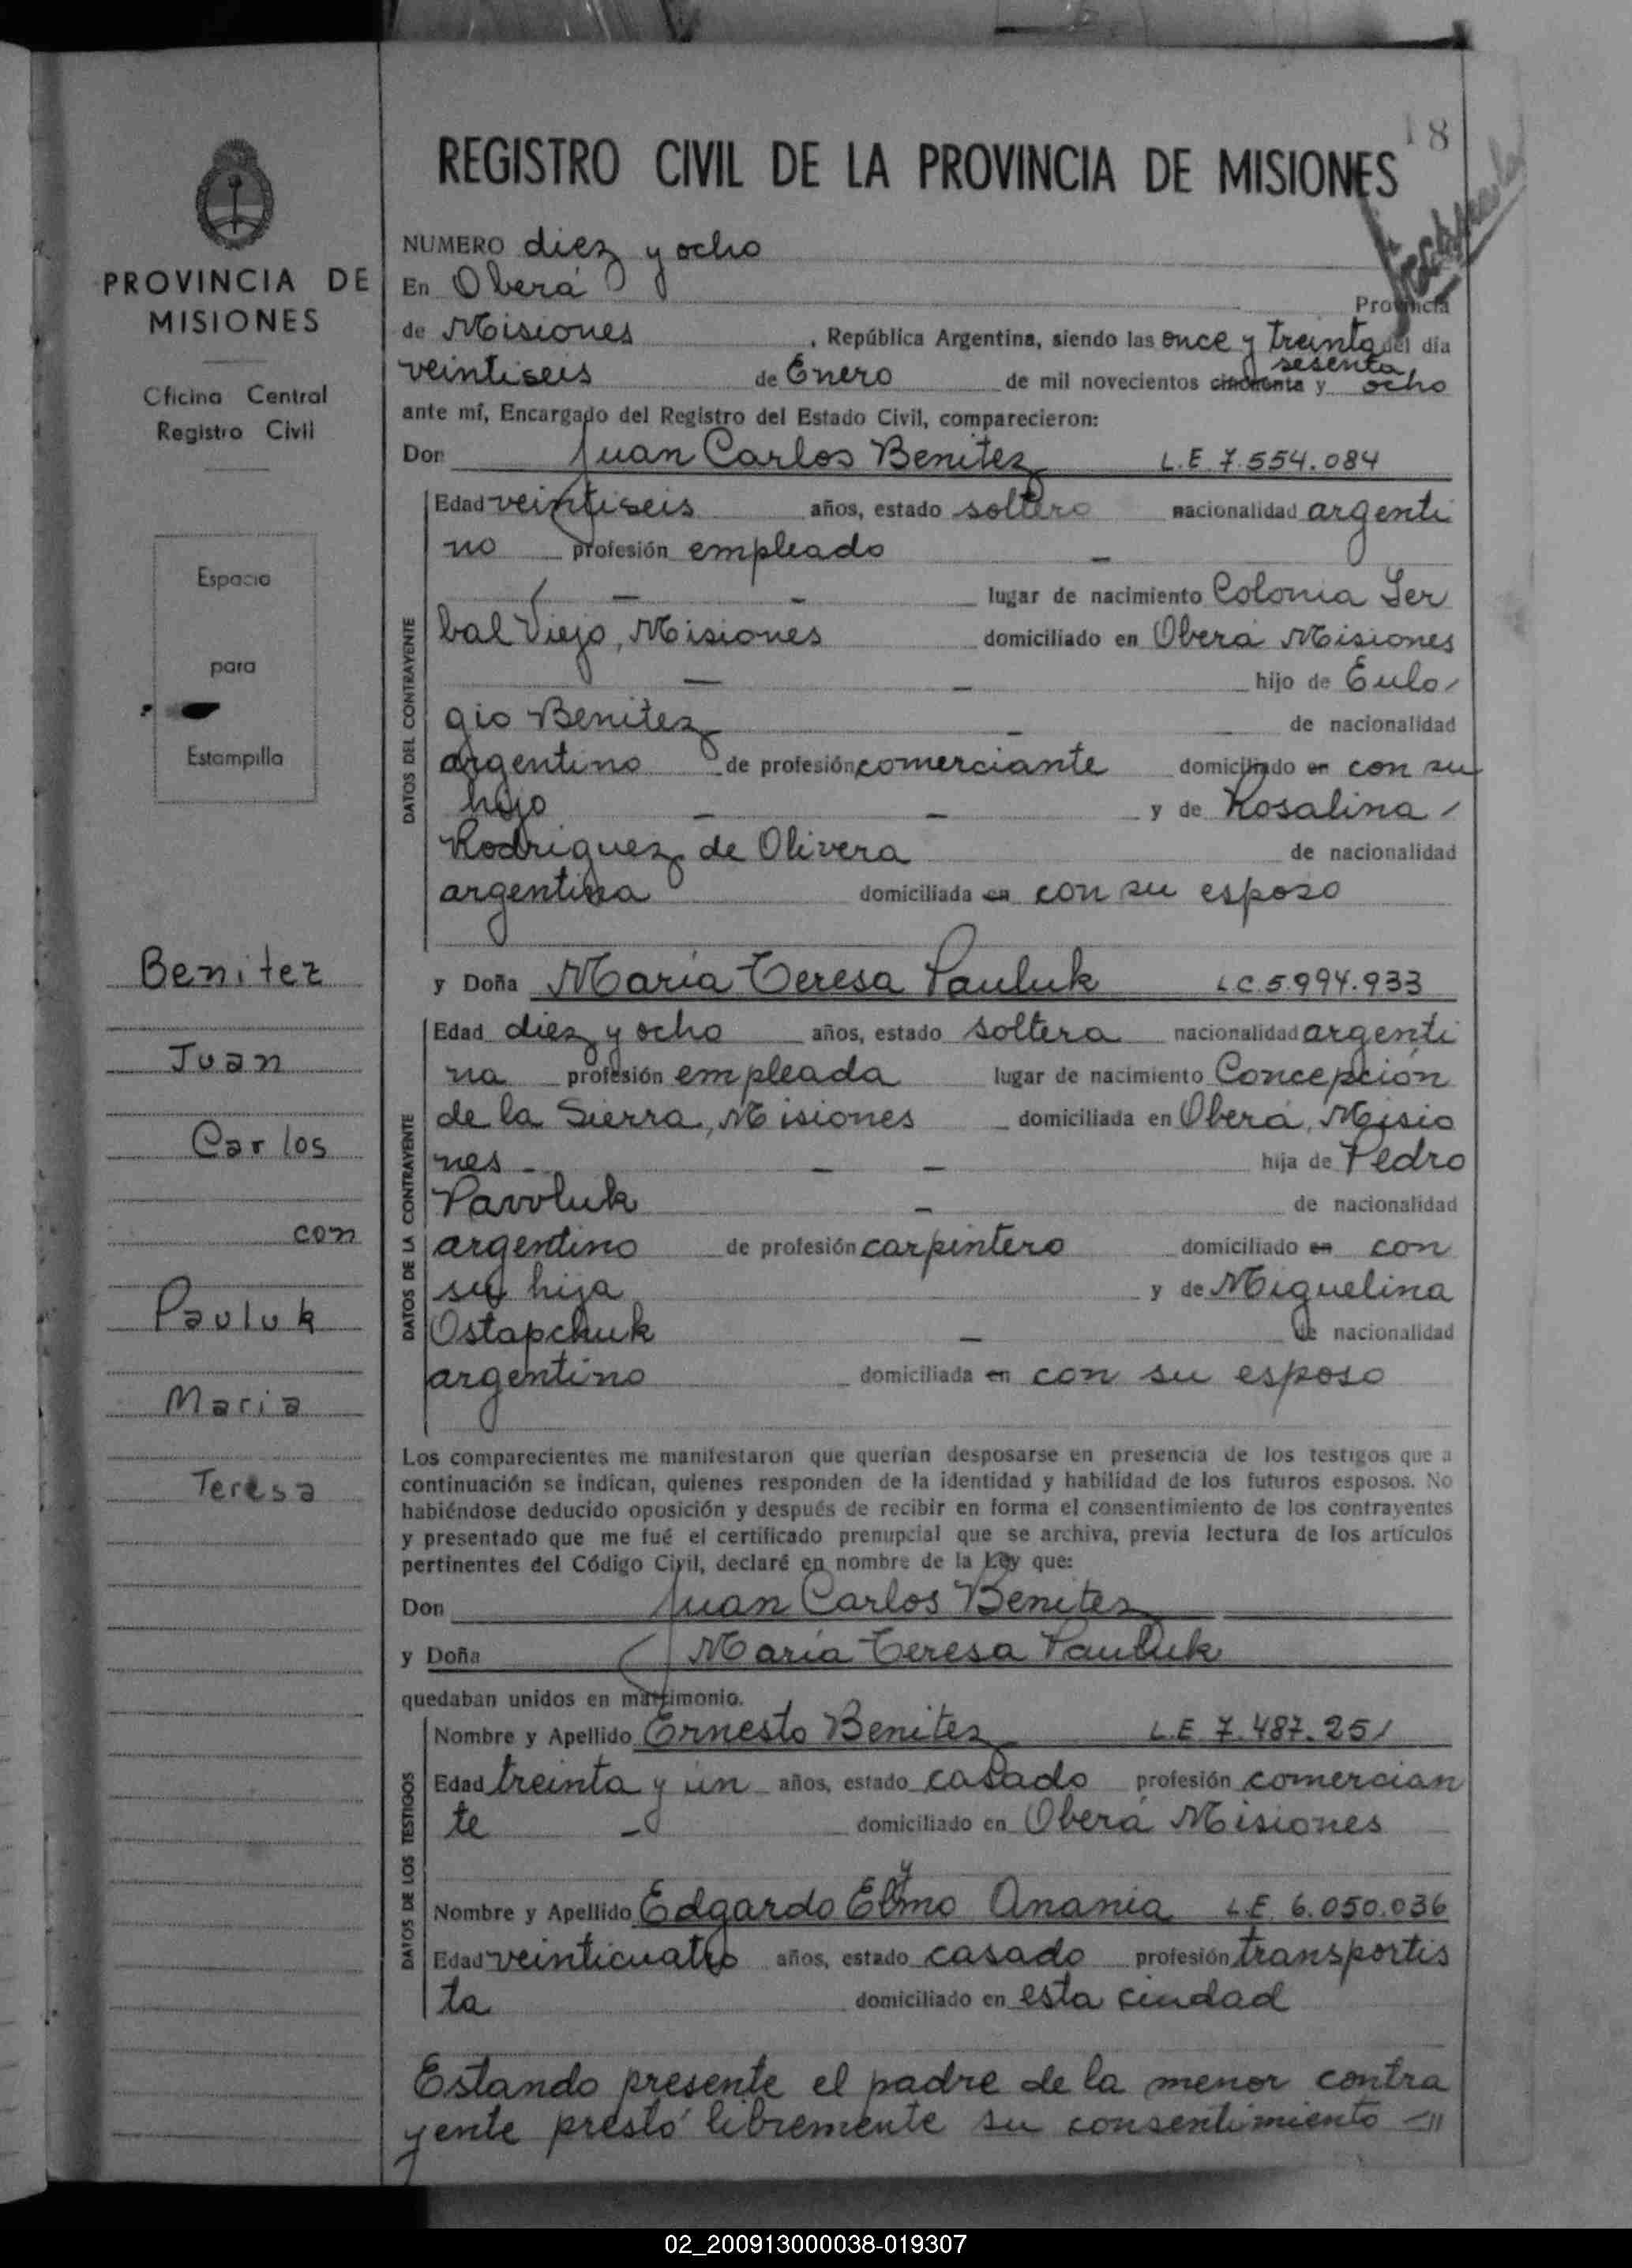 18
REGISTRO CIVIL DE LA PROVINCIA DE MISIONES
NUMERO diez y ocho
En Oberá Provincia
de Misiones , República Argentina, siendo las once y treinta del día
sesenta
veintiseis de Enero de mil novecientos cincuenta y ocho
ante mí, Encargado del Registro del Estado Civil, comparecieron:
Don Juan Carlos Benitez L.E. 7.554.084
DATOS DEL CONTRAYENTE
Edad veintiseis años, estado soltero nacionalidad argenti
no profesión empleado –
– – lugar de nacimiento Colonia Yer
bal Viejo, Misiones domiciliado en Oberá Misiones
– – hijo de Eulo
gio Benitez – de nacionalidad
argentino de profesión comerciante domiciliado en con su
hijo – – y de Rosalina
Rodriguez de Olivera de nacionalidad
argentina domiciliada en con su esposo
y Doña María Teresa Pauluk L.C 5.994.933
DATOS DE LA CONTRAYENTE
Edad diez y ocho años, estado soltera nacionalidad argenti
na profesión empleada lugar de nacimiento Concepción
de la Sierra, Misiones domiciliada en Oberá, Misio
nes – – – hija de Pedro
Pavoluk – de nacionalidad
argentino de profesión carpintero domiciliado en con
su hija y de Miguelina
Ostapchuk – de nacionalidad
argentino domiciliada en con su esposo
Los comparecientes me manifestaron que querían desposarse en presencia de los testigos que a
continuación se indican, quienes responden de la identidad y habilidad de los futuros esposos. No
habiéndose deducido oposición y después de recibir en forma el consentimiento de los contrayentes
y presentado que me fué el certificado prenupcial que se archiva, previa lectura de los artículos
pertinentes del Código Civil, declaré en nombre de la Ley que:
Don Juan Carlos Benitez
y Doña María Teresa Pauluk
quedaban unidos en matrimonio.
DATOS DE LOS TESTIGOS
Nombre y Apellido Ernesto Benitez L.E. 7.487.251
Edad treinta y un años, estado casado profesión comercian
te – domiciliado en Oberá Misiones
Nombre y Apellido Edgardo Elmo Anania L.E. 6.050.036
Edad veinticuatro años, estado casado profesión transportis
ta domiciliado en esta ciudad
Estando presente el padre de la menor contra
yente prestó libremente su consentimiento
PROVINCIA DE
MISIONES
Oficina Central
Registro Civil
Espacio
para
Estampilla
Benitez
Juan
Carlos
con
Pauluk
Maria
Teresa
02_200913000038-019307